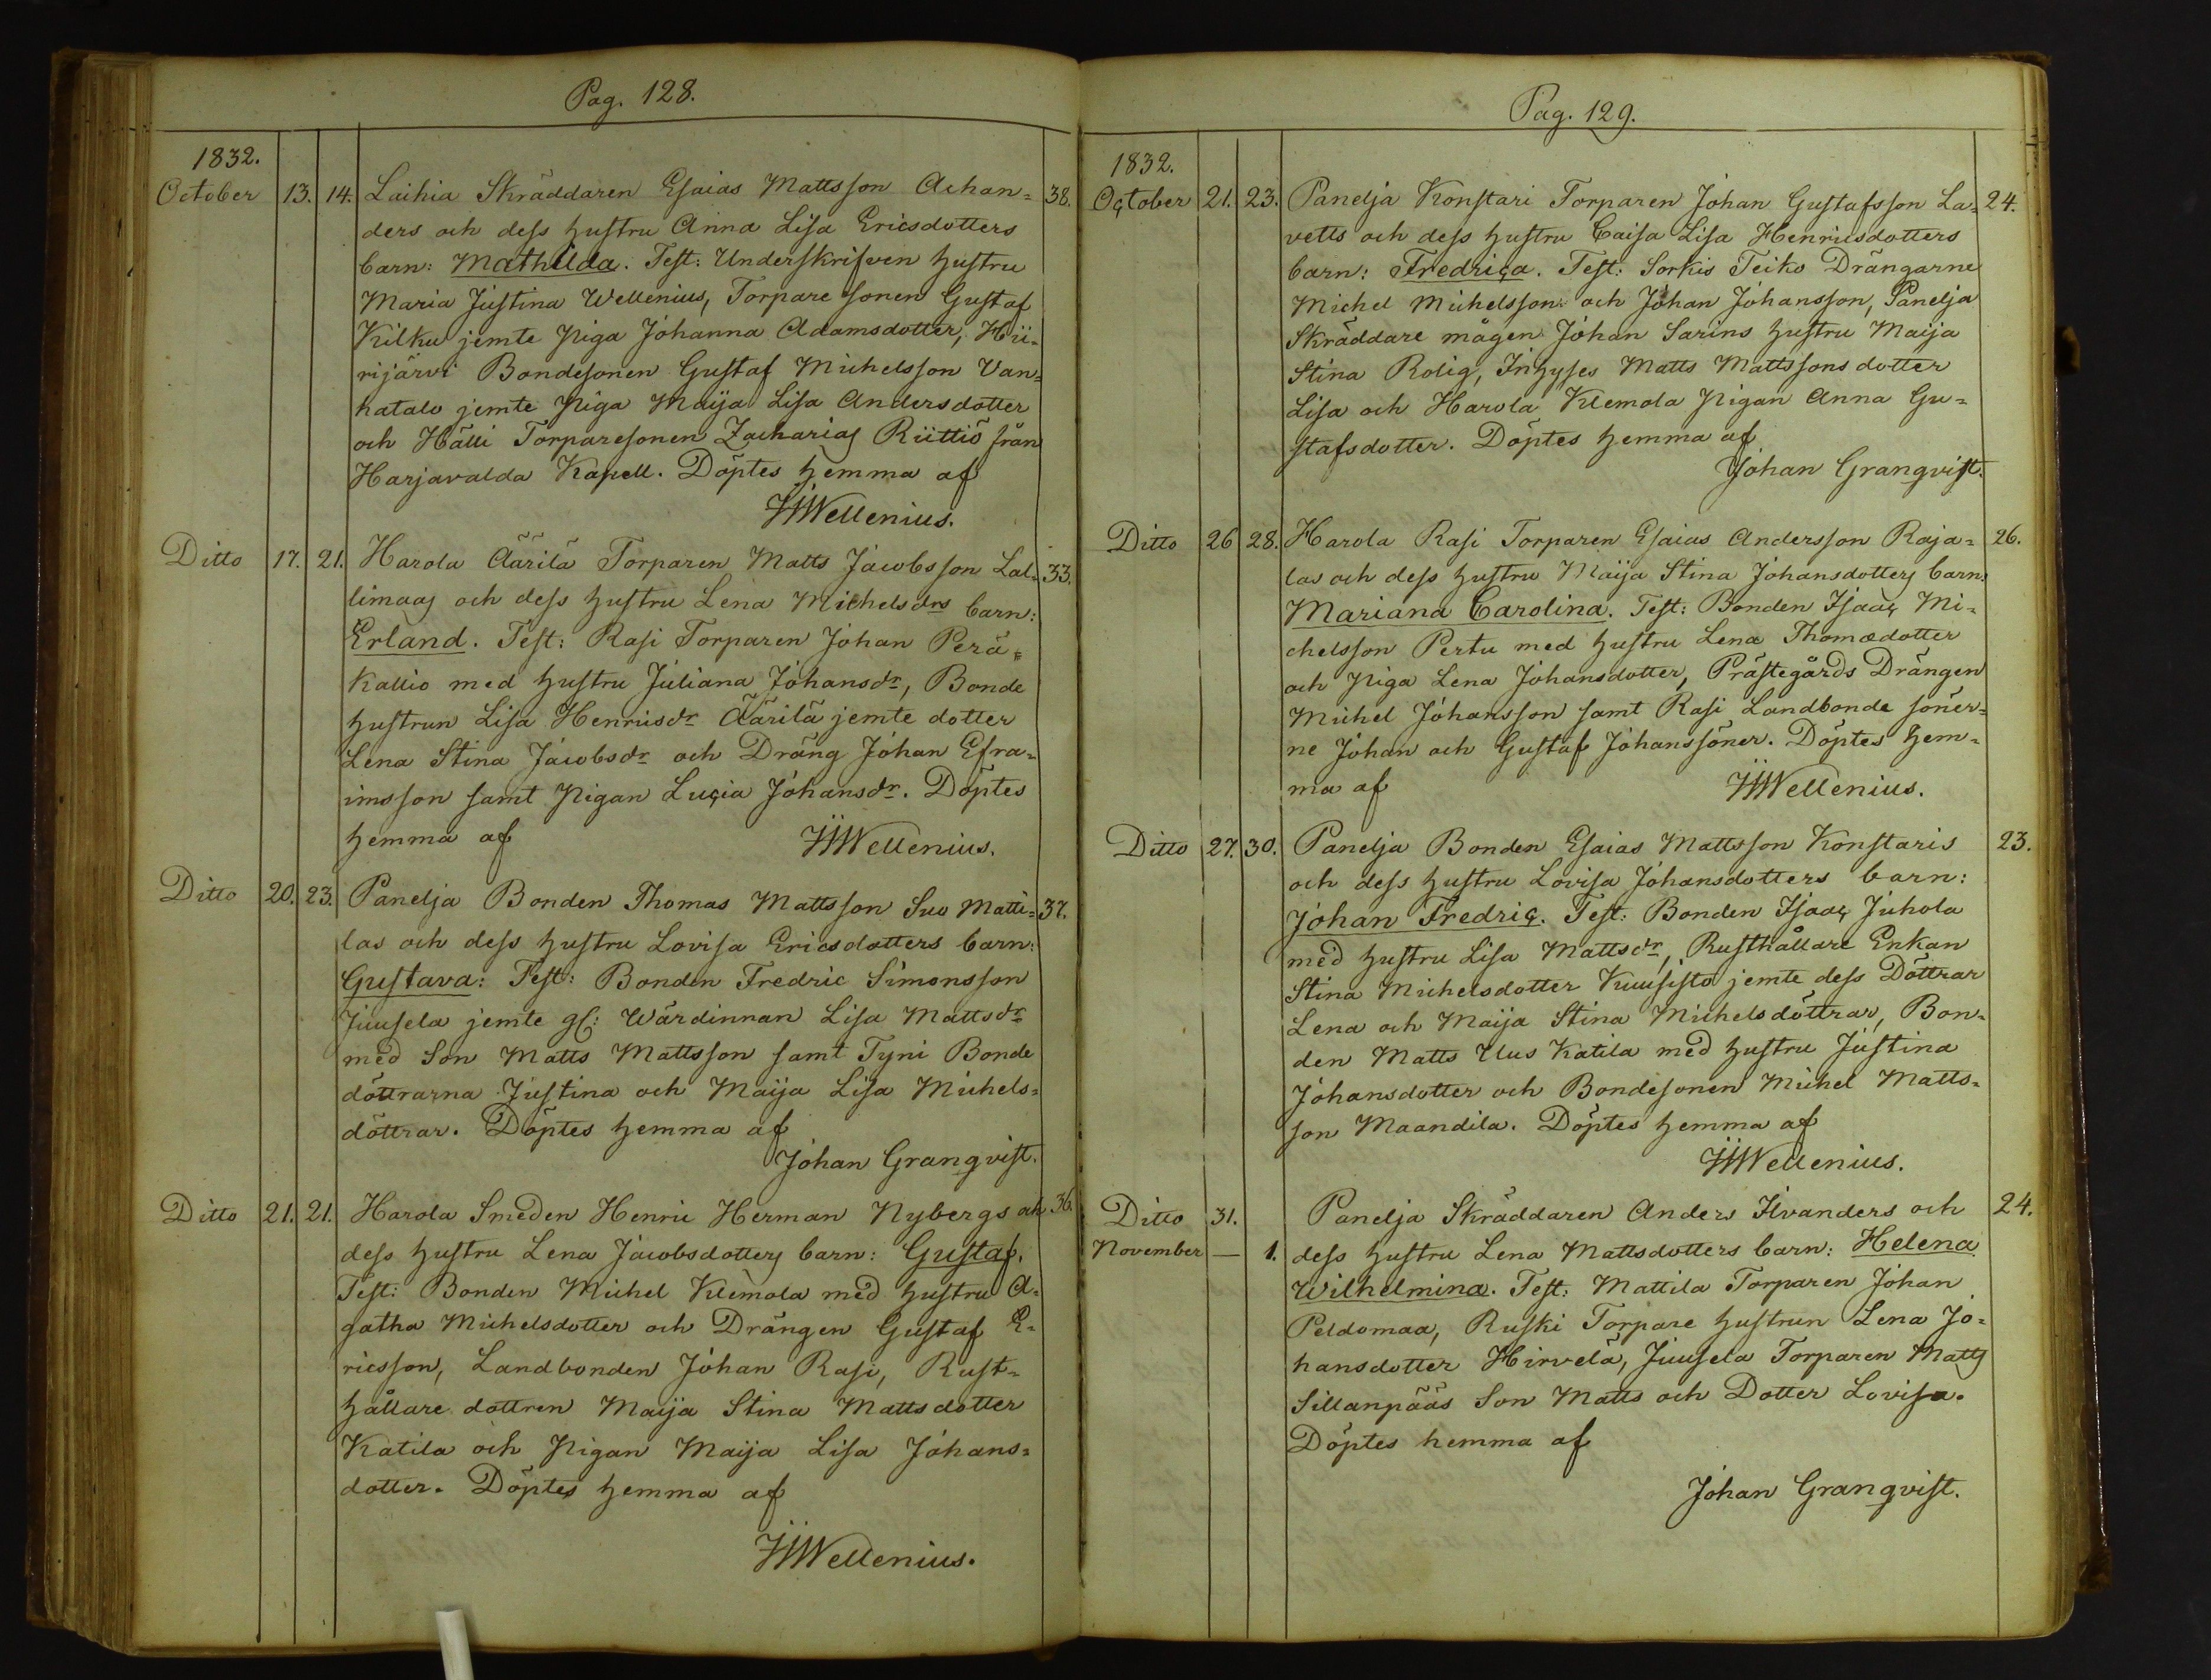 Pag. 128.
1832.
October 13. 14. Laihia Skräddaren Esaias Mattsson Achan= 38.
ders och dess hustru Anna Lisa Ericsdotters
barn: Mathilda. Test: Underskrifven hustru
Maria Justina Wellenius, Torpare sonen Gustaf
Kilku jemte Pigan Johanna Adamsdotter, Hii-
rijärvi Bondesonen Gustaf Michelsson Van=
hatalo jemte Piga Maija Lisa Andersdotter
och Hälli Torparesonen Zacharias Riittiö från
Harjavalda Kapell. Döptes hemma af
HWellenius.
Ditto 17. 21. Harola Äärilä Torparen Matts Jacobsson Lal= 33.
limaas och dess hustru Lena Michelsdrs barn:
Erland. Test: Rasi Torparen Johan Perä=
kallio med hustru Juliana Johansdr, Bonde
hustrun Lisa Henricsdr Äärilä jemte dotter
Lena Stina Jacobsdr och Dräng Johan Efra=
imsson samt Pigan Lucia Johansdr. Döptes
hemma af HWellenius.
Ditto 20. 23. Panelja Bonden Thomas Mattsson Suo Matti= 37.
las och dess hustru Lovisa Ericsdotters barn:
Gustava: Test: Bonden Fredric Simonsson
Juusela jemte gl: Wärdinnan Lisa Mattsdr
med Son Matts Mattsson samt Tyni Bonde
döttrarna Justina och Maija Lisa Michels=
döttrar. Döptes hemma af
Johan Granqvist.
Ditto 21. 21. Harola Smeden Henric Herman Nybergs och 36.
dess hustru Lena Jacobsdotters barn: Gustaf.
Test: Bonden Michel Klemola med hustru A=
gatha Michelsdotter och Drängen Gustaf E=
ricsson, Landbonden Johan Rasi, Rust=
hållare dottren Maija Stina Mattsdotter
Katila och Pigan Maija Lisa Johans=
dotter. Döptes hemma af
HWellenius.
Pag. 129.
1832.
October 21. 23. Panelja Konstari Torparen Johan Gustafsson La= 24.
vetts och dess hustru Caisa Lisa Henricsdotters
barn: Fredrica. Test: Sorkis Teiko Drängarne
Michel Michelsson och Johan Johansson, Panelja
Skräddare mågen Johan Sarins hustru Maija
Stina Rolig, Inhyses Matts Mattssons dotter
Lisa och Harola Klemola Pigan Anna Gu=
stafsdotter. Döptes hemma af
Johan Granqvist.
Ditto 26 28. Harola Rasi Torparen Esaias Andersson Raja= 26.
las och dess hustru Maija Stina Johansdotters barn:
Mariana Carolina. Test: Bonden Isaac Mi=
chelsson Pertu med hustru Lena Thomædotter
och Piga Lena Johansdotter, Prästegårds Drängen
Michel Johansson samt Rasi Landbonde söner=
ne Johan och Gustaf Johanssöner. Döptes hem=
ma af HWellenius.
Ditto 27. 30. Panelja Bonden Esaias Mattsson Konstaris 23.
och dess hustru Lovisa Johansdotters barn:
Johan Fredric. Test: Bonden Isaac Juhola
med hustru Lisa Mattsdr, Rusthållare Enkan
Stina Michelsdotter Kuusisto jemte dess Döttrar
Lena och Maija Stina Michelsdöttrar, Bon=
den Matts Uus Katila med hustru Justina
Johansdotter och Bondesonen Michel Matts=
son Maandila. Döptes hemma af
HWellenius.
Ditto 31. Panelja Skräddaren Anders Ilvanders och 24.
November — 1. dess hustru Lena Mattsdotters barn: Helena
Wilhelmina. Test: Mattila Torparen Johan
Peldomaa, Ruski Torpare hustrun Lena Jo=
hansdotter Hirvelä, Juusela Torparen Matts
Sillanpääs Son Matts och Dotter Lovisa.
Döptes hemma af
Johan Granqvist.